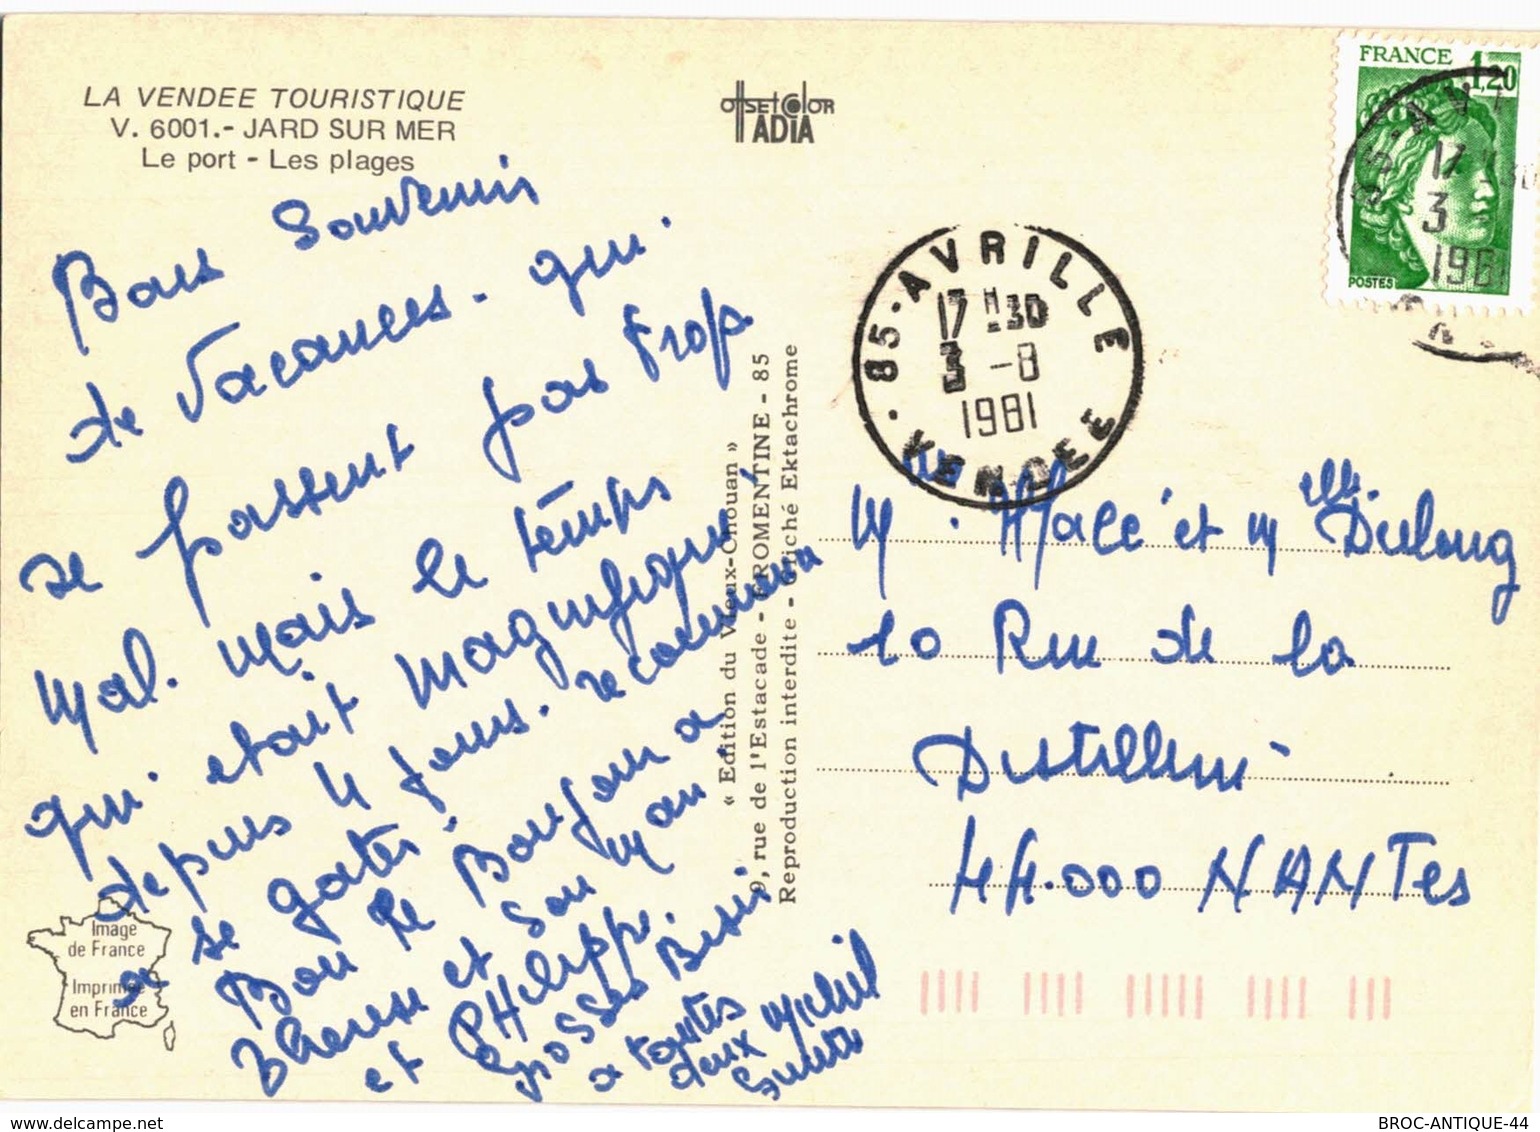 LA VENDEE TOURISTIQUE
V. 6001.- JARD SUR MER
Le port - Les plages
OffSEt COlOR
ADIA
FRANCE 1,20
POSTES
17 30
3
1981
85 - AVRILLE
17 H 30
3 -8
1981
VENDEE
Bons Souvenir
de Vacances. qui.
se passent pas trop
mal. mais le temps
qui etait magnifique
depuis 4 jours. recommence
a se gater.
Bon Le Bonjour a
Therese et Son Mari.
et PHilippe.
Grosses Bises
a toutes
deux Michel
« Edition du Vieux-Chouan »
9, rue de l'Estacade - FROMENTINE - 85
Reproduction interdite - Cliché Ektachrome
Mme Macé et Melle Dulong
10 Rue de la
Distillerie
44.000 NANTes
Image
de France
Imprimée
en France
BROC-ANTIQUE-44